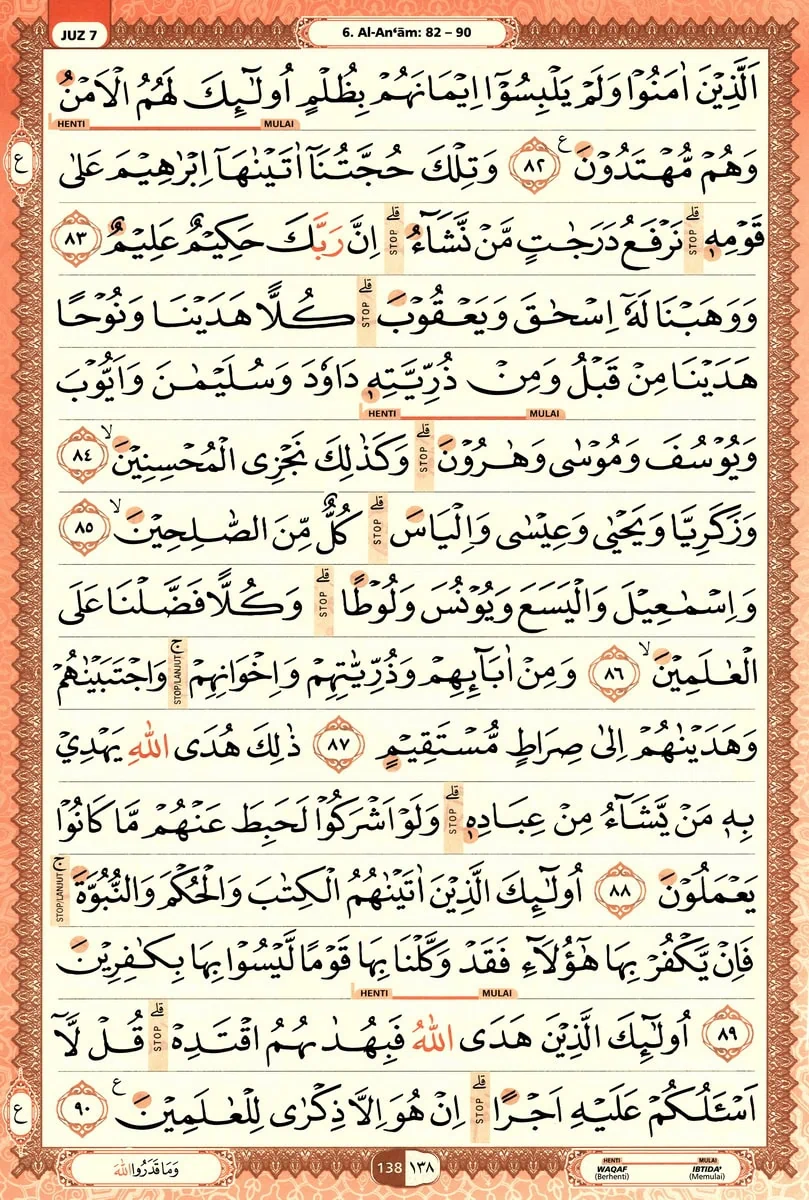 JUZ 7
6. Al-An‘ām: 82 – 90
اَلَّذِيْنَ اٰمَنُوْا وَلَمْ يَلْبِسُوْٓا اِيْمَانَهُمْ بِظُلْمٍ اُولٰۤىِٕكَ لَهُمُ الْاَمْنُ
HENTI MULAI
وَهُمْ مُّهْتَدُوْنَ ࣖ ٨٢ وَتِلْكَ حُجَّتُنَآ اٰتَيْنٰهَآ اِبْرٰهِيْمَ عَلٰى
ع
قَوْمِهٖۗ STOP نَرْفَعُ دَرَجٰتٍ مَّنْ نَّشَاۤءُۗ STOP اِنَّ رَبَّكَ حَكِيْمٌ عَلِيْمٌ ٨٣
وَوَهَبْنَا لَهٗٓ اِسْحٰقَ وَيَعْقُوْبَۗ STOP كُلًّا هَدَيْنَا وَنُوْحًا
هَدَيْنَا مِنْ قَبْلُ وَمِنْ ذُرِّيَّتِهٖ دَاوٗدَ وَسُلَيْمٰنَ وَاَيُّوْبَ
HENTI MULAI
وَيُوْسُفَ وَمُوْسٰى وَهٰرُوْنَۗ STOP وَكَذٰلِكَ نَجْزِى الْمُحْسِنِيْنَۙ ٨٤
وَزَكَرِيَّا وَيَحْيٰى وَعِيْسٰى وَاِلْيَاسَۗ STOP كُلٌّ مِّنَ الصّٰلِحِيْنَۙ ٨٥
وَاِسْمٰعِيْلَ وَالْيَسَعَ وَيُوْنُسَ وَلُوْطًاۗ STOP وَكُلًّا فَضَّلْنَا عَلَى
الْعٰلَمِيْنَۙ ٨٦ وَمِنْ اٰبَاۤىِٕهِمْ وَذُرِّيّٰتِهِمْ وَاِخْوَانِهِمْۚ STOP/LANJUT وَاجْتَبَيْنٰهُمْ
وَهَدَيْنٰهُمْ اِلٰى صِرَاطٍ مُّسْتَقِيْمٍ ٨٧ ذٰلِكَ هُدَى اللّٰهِ يَهْدِيْ
بِهٖ مَنْ يَّشَاۤءُ مِنْ عِبَادِهٖۗ STOP وَلَوْ اَشْرَكُوْا لَحَبِطَ عَنْهُمْ مَّا كَانُوْا
يَعْمَلُوْنَ ٨٨ اُولٰۤىِٕكَ الَّذِيْنَ اٰتَيْنٰهُمُ الْكِتٰبَ وَالْحُكْمَ وَالنُّبُوَّةَۚ STOP/LANJUT
فَاِنْ يَّكْفُرْ بِهَا هٰٓؤُلَاۤءِ فَقَدْ وَكَّلْنَا بِهَا قَوْمًا لَّيْسُوْا بِهَا بِكٰفِرِيْنَ
HENTI MULAI
٨٩ اُولٰۤىِٕكَ الَّذِيْنَ هَدَى اللّٰهُ فَبِهُدٰىهُمُ اقْتَدِهْۗ STOP قُلْ لَّآ
اَسْـَٔلُكُمْ عَلَيْهِ اَجْرًاۗ STOP اِنْ هُوَ اِلَّا ذِكْرٰى لِلْعٰلَمِيْنَ ࣖ ٩٠
ع
وَمَا قَدَرُوا اللّٰهَ
138 ١٣٨
HENTI MULAI
WAQAF IBTIDA’
(Berhenti) (Memulai)